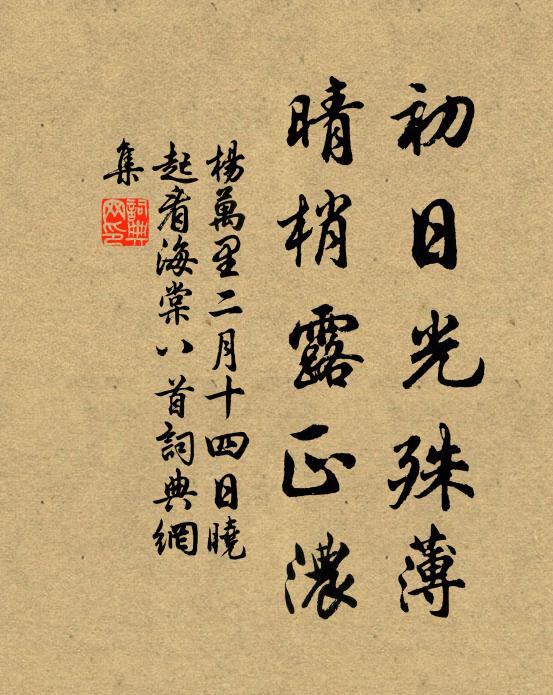 初日光殊薄
晴梢露正濃
楊萬里二月十四日曉
起看海棠八首詞典網
集
詞典網印